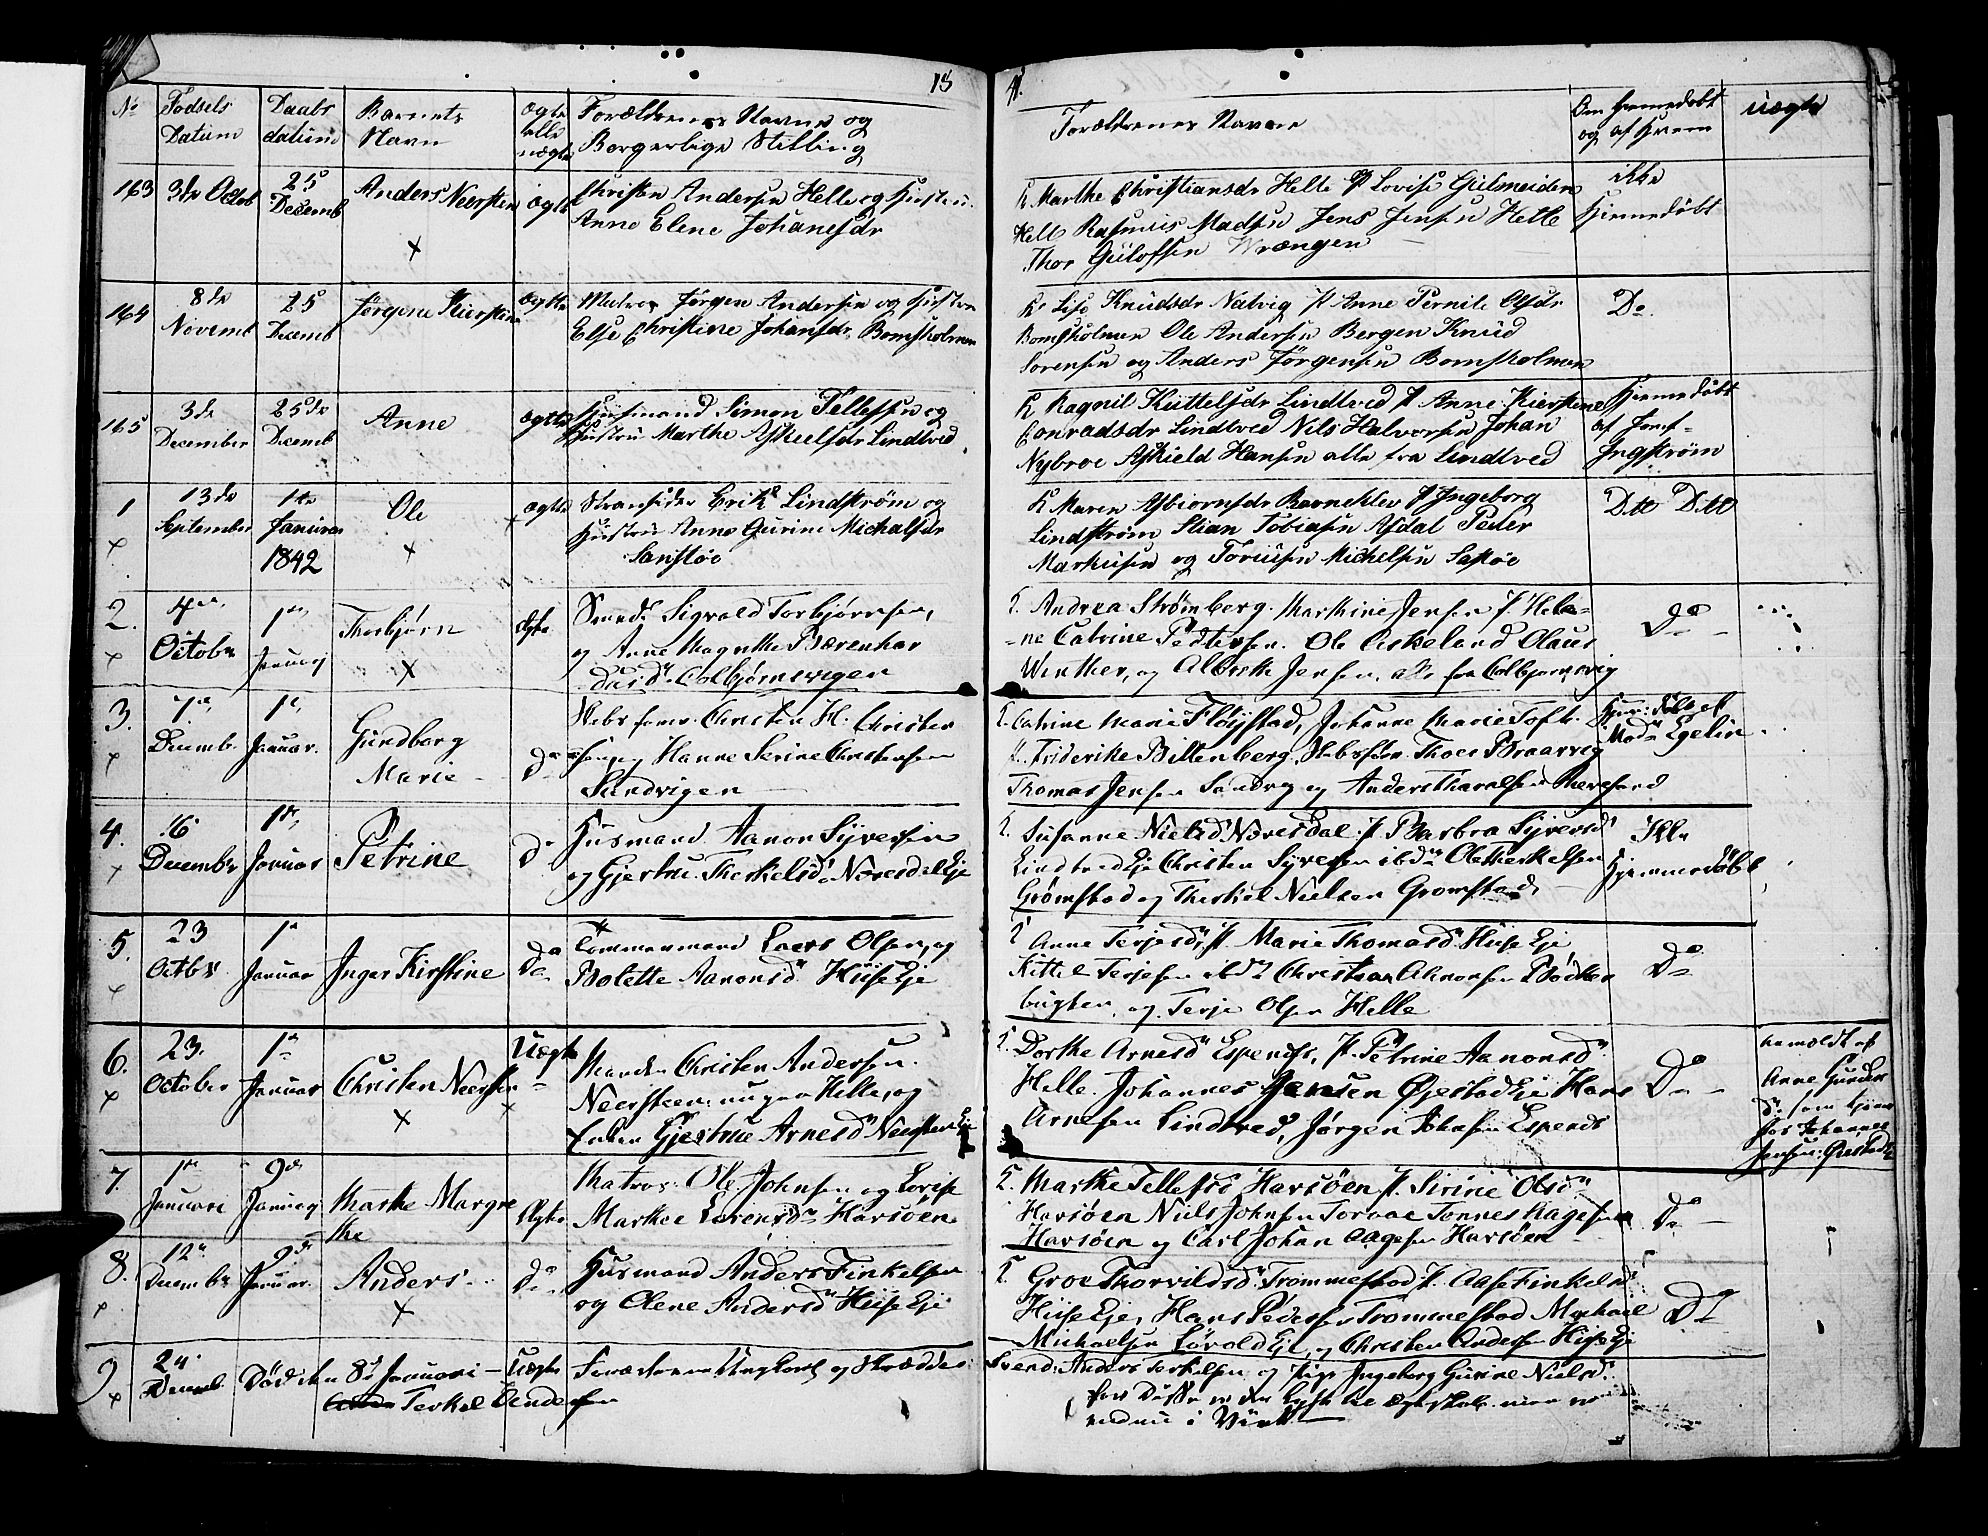 18 41.
No Fødsels Datum Daabs datum Barnets Navn Ægte elle uægte Forældrenes Navne og Borgerlige Stilling
Forældrenes Navne Om hiemmedøbt og af hvem uægte
163 3de Octob 25 Decemb Anders Neersten ægte Christen Andersen Helle og Hustru
Anne Elene Johanesdr
K. Marthe Christiansdr Helle P Lovise Gulmeiden ikke
Helle Rasmus Madsen Jens Jensen Helle Hiemmedøbt
Thor Gulofsen Vrængen
164 8de Novemb 25 Decemb Jørgine Kierstine ægte Matros Jørgen Andersen og Hustru
Else Christine Johansdr Bomsholmen
K. Lise Knudsdr Natvig P Anne Pernile Olsdr Do
Bomsholmen Ole Andersen Bergen Knud
Sørensen og Anders Jørgensen Bomsholmen
165 3de December 25de Decemb Anne ægte Husmand Simon Tellefsen og
Hustru Marthe Askielsdr Lindtved
K Ragnil Kittelsdr Lindtved P Anne Kierstine Hiemmedøbt
Conradsdr Lindtved Nils Halvorsen Johan af Jomf
Nybroe Askield Hansen alle fra Lindtved Ingstrøm
1 13de September 1te Januar 1842 Ole ægte Strandsider Erik Lindstrøm og
Hustru Anne Gurine Michalsdr
Sanstøe
K Maren Asbiornsdr Barneklev P Ingeborg Dtto Dtto
Lindstrøm Stian Tobiasen Asdal Peder
Markusen og Michelsen Sastøe
2. 4de October 1te Januar Thorbjørn Ægte Smed Sigvald Torbjørnsen,
og Anne Magrethe Bærenhar
dusdr Colbjørnsvigen
K. Andrea Strømberg. Marthine Jensen P. Hela- Do
-ne Catrine Pedtersen. Ole Askeland Olaus
Winther, og Albrekt Jensen, alle fra Colbjørnsvig
3. 7de Decemb. 1te Januar. Gundborg Marie do Skibsfører Christen H. Christen
sen og Hanne Serine Christensen
Sandvigen
K. Catrine Marie Fløystad, Johanne Marie Toft. Hjemedøbt af
P. Friderike Biltenberg, Skibsfører Thoer Braarvig Mad. Egelin
Thomas Jensen Sandvig og Anders Tharalsen
4. 16 Decembr 1te Januar Petrine do Husmand Aanon Syversen
og Gjertru Therkelsdr Næresdal Eje
K. Susanne Nielsdr Næresdal. P. Barbra Syversdr Ikke
Lindtved Eje Christen Syversen ibdm Ole Therkelsen Hjemmedøbt
Grømstad og Therkel Nielsen Gromstad
5. 23 Octbr 1te Januar Inger Kirstine do Tømmermand Laers Olsen, og
Bolette Aanonsdr Hiise Eje
K Anne Terjesdr P. Marie Thomasdr Hiise Eje Do
Kittel Terjesen ibdm Christian Aanonsen Bøcker
bugten, og Terje Olsen Helle
6. 23. October 1te Januar Christen Neersten Uægte Manden Christen Andersen
Neersteen, nu paa Helle, og
Enken Gjertrue Arnesdr Neersten Eje
K. Dorthe Arnesdr Espenes. P. Petrine Aanonsdr Do
Helle. Johannes Jensen Øjestad Eje Hans
Arnesen Lindtved, Jørgen Johnsen Espenes
anmeldt af
Anne Gunders
dr som tjener
hos Johannes
Jensen Øiestad Eje
7. 1te Januari 9de Januar Marthe Margre the Ægte Matros Ole Johnsen og Lovise
Marthe Lorensdr Havsøen
K. Marthe Tellefsd Havsøen P. Sirine Olsdr Do
Havsøen Niels Johnsen Tønnes Aagesen
Havsøen og Carl Johan Aagesen Havsøen
8. 12te Decembr 9de Januar. Anders do Husmand Anders Finkelsen
og Olene Andersdr Hiise Eje
K. Groe Thorvildsdr Trommestad P. Aase Finkelsd Do
Hiise Eje, Hans Pedersen Trommestad Mychael
Michaelsen Løvold Eje, og Christen Andersen Hiise Eje
9 24 Decemb. Død den 8de Januari Uægte Forældrene Ungkarl og Skrædder
Terkel Andersen
Svend: Anders Terkelsen og Pige Ingeborg Gurine Nielsd.